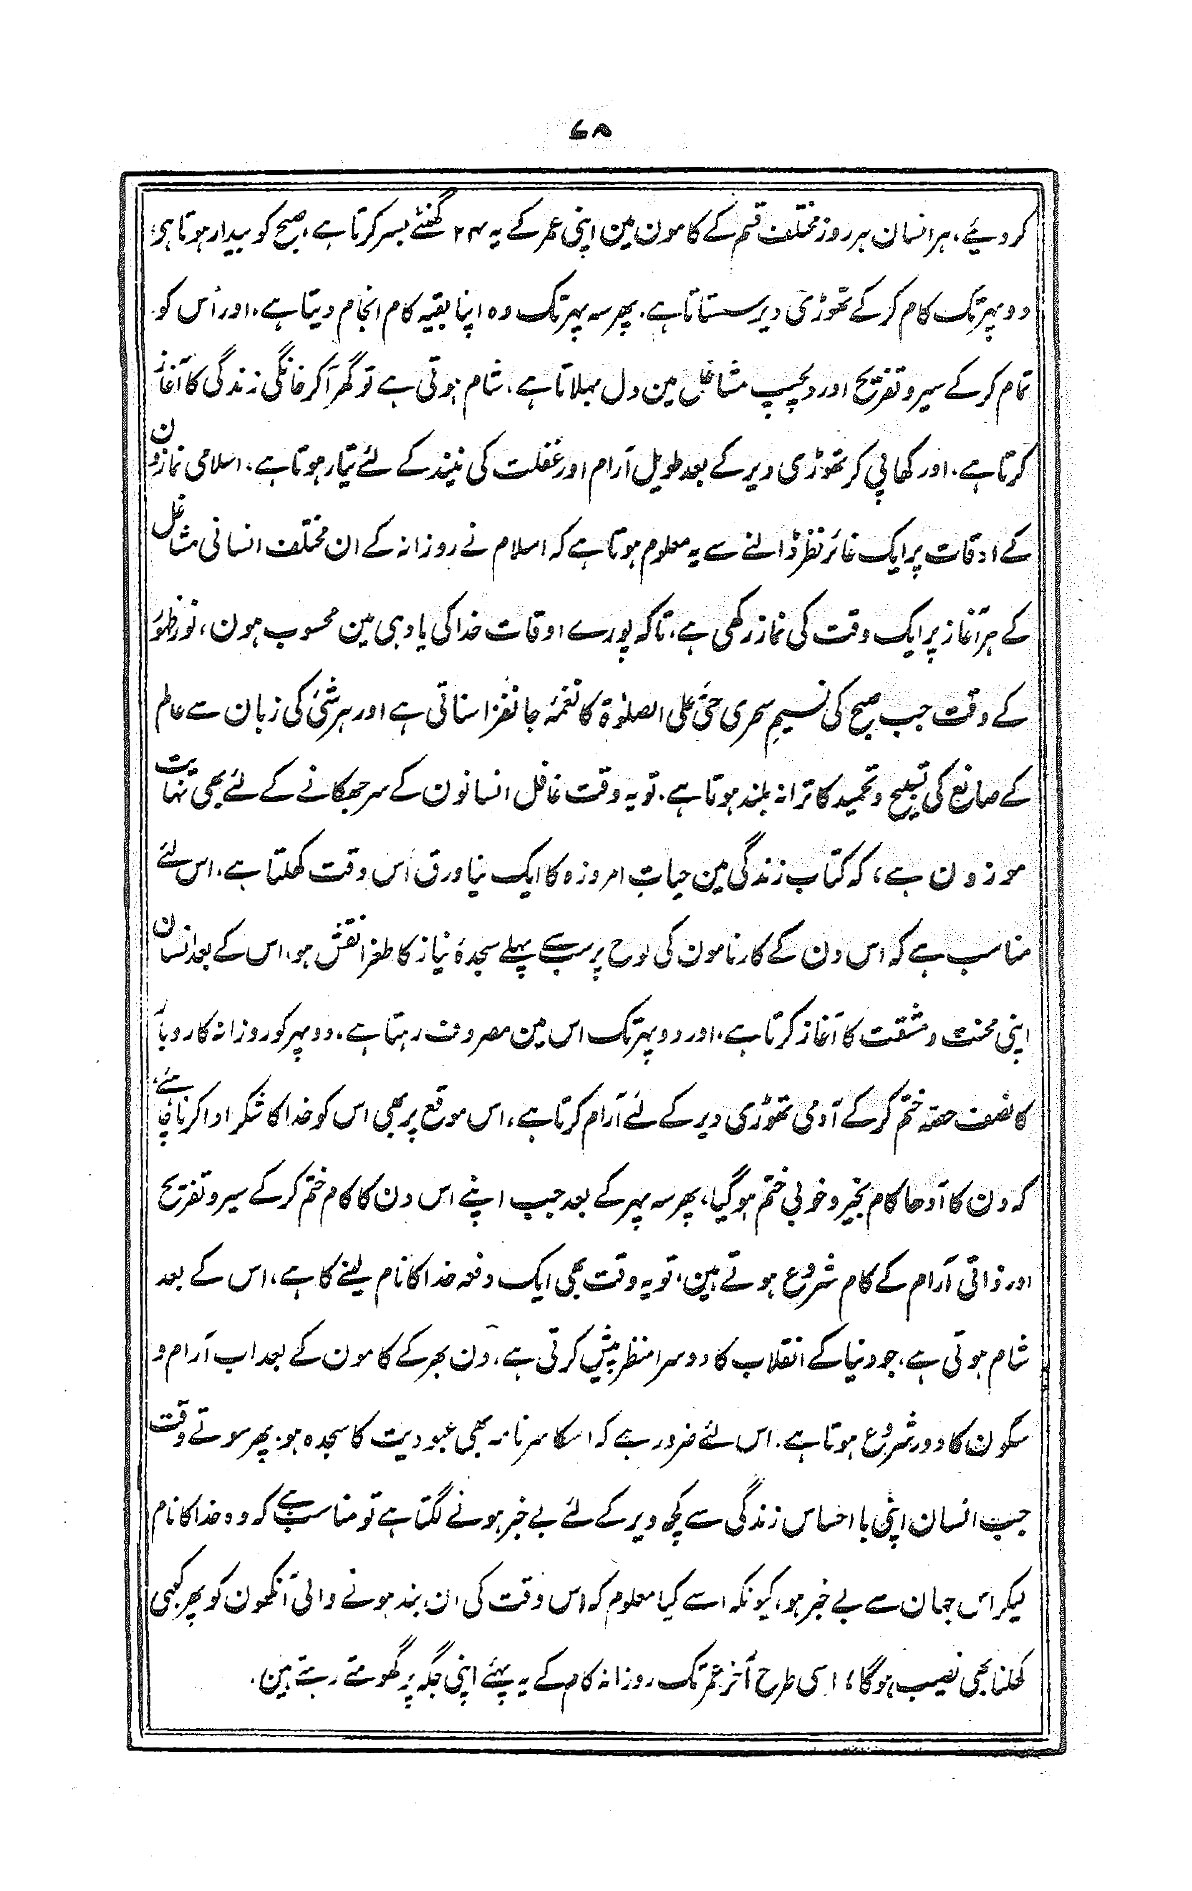 ۷۵
کر دیئے، ہر انسان ہر روز مختلف قسم کے کامون مین اپنی عمر کے یہ ۲۴ گھنٹے بسر کرتا ہے، صبح کو بیدار ہوتا ہو،
دوپہر تک کام کر کے تھوڑی دیر سستاتا ہے، پھر سہ پہر تک وہ اپنا بقیہ کام انجام دیتا ہے، اور اُس کو
تمام کر کے سیر و تفریح اور دلچسپ مشاغل مین دل بہلاتا ہے، شام ہوتی ہے تو گھر آکر خانگی زندگی کا آغاز
کرتا ہے، اور کھا پی کر تھوڑی دیر کے بعد طویل آرام اور غفلت کی نیند کے لئے تیار ہوتا ہے، اسلامی نمازون
کے اوقات پر ایک غائر نظر ڈالنے سے یہ معلوم ہوتا ہے کہ اسلام نے روزانہ کے ان مختلف انسانی مشاغل
کے ہر آغاز پر ایک وقت کی نماز رکھی ہے، تاکہ پورے اوقات خدا کی یاد ہی مین محسوب ہون، نور ظہور
کے وقت جب صبح کی نسیمِ سحری حیَّ علی الصلوٰۃ کا نغمۂ جانفزا سناتی ہے اور ہر شئ کی زبان سے عالم
کے صانع کی تسبیح و تحمید کا ترانہ بلند ہوتا ہے، تو یہ وقت غافل انسانون کے سر جھکانے کے لئے بھی نہایت
موزون ہے، کہ کتاب زندگی مین حیاتِ امروزہ کا ایک نیا ورق اُس وقت کھلتا ہے، اس لئے
مناسب ہے کہ اس دن کے کارنامون کی لوح پر سب سے پہلے سجدۂ نیاز کا طغرا نقش ہو، اس کے بعد انسان
اپنی محنت و مشقت کا آغاز کرتا ہے، اور دوپہر تک اس مین مصروف رہتا ہے، دوپہر کو روزانہ کاروبار
کا نصف حصّہ ختم کر کے آدمی تھوڑی دیر کے لئے آرام کرتا ہے، اس موقع پر بھی اس کو خدا کا شکر ادا کرنا چاہئے،
کہ دن کا آدھا کام بخیر و خوبی ختم ہو گیا، پھر سہ پہر کے بعد جب اپنے اس دن کا کام ختم کر کے سیر و تفریح
اور ذاتی آرام کے کام شروع ہوتے ہین، تو یہ وقت بھی ایک دفعہ خدا کا نام لینے کا ہے، اس کے بعد
شام ہوتی ہے، جو دنیا کے انقلاب کا دوسرا منظر پیش کرتی ہے، دن بھر کے کامون کے بعد اب آرام و
سکون کا دور شروع ہوتا ہے، اس لئے ضرور ہے کہ اسکا سرنامہ بھی عبودیت کا سجدہ ہو، پھر سوتے وقت
جب انسان اپنی با احساس زندگی سے کچھ دیر کے لئے بے خبر ہونے لگتا ہے تو مناسب ہے کہ وہ خدا کا نام
لیکر اس جہان سے بے خبر ہو، کیونکہ اسے کیا معلوم کہ اس وقت کی ان بند ہونے والی آنکھون کو پھر کبھی
کھلنا بھی نصیب ہوگا؟ اسی طرح آخر عمر تک روزانہ کام کے یہ پہیے اپنی جگہ پر گھومتے رہتے ہین،